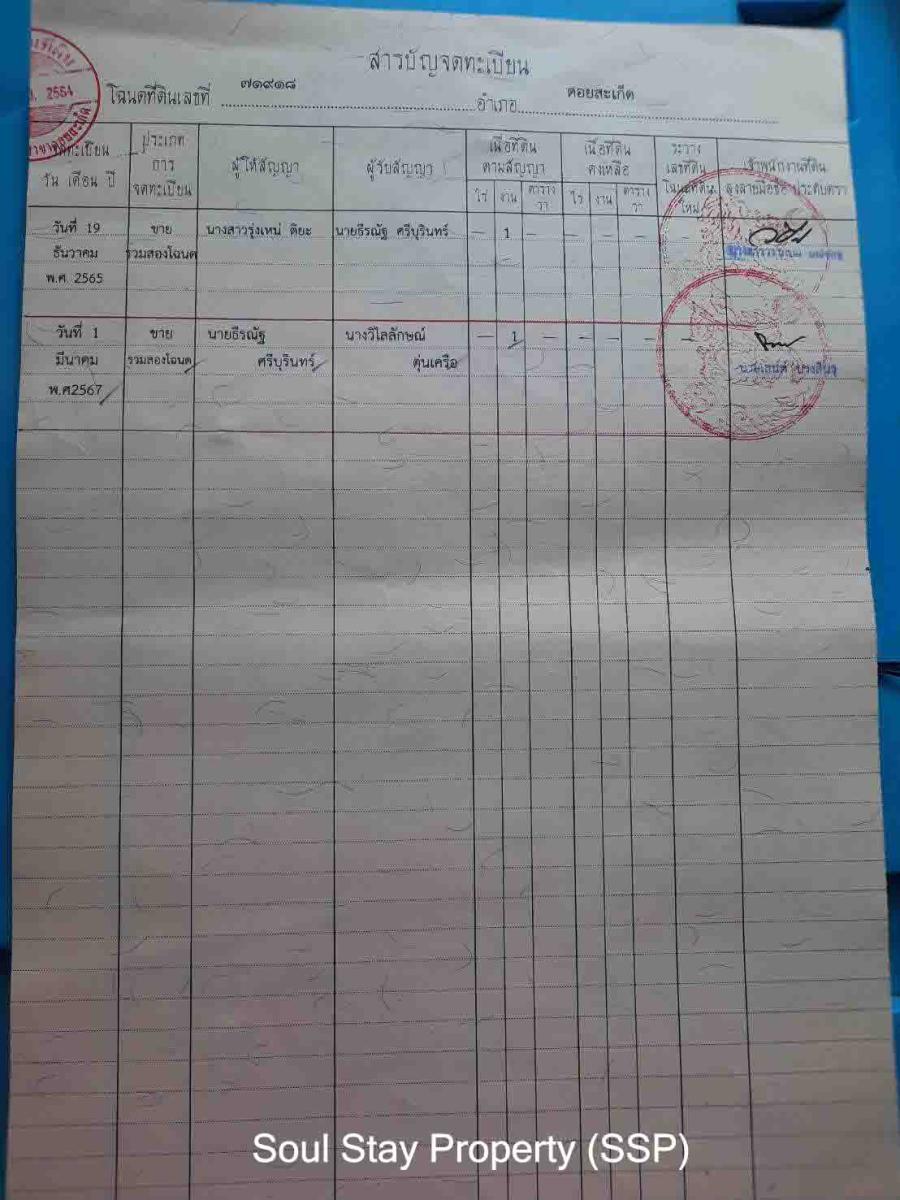 สารบัญจดทะเบียน
โฉนดที่ดินเลขที่ ๗๑๙๑๘ อำเภอ ดอยสะเก็ด
2564
จดทะเบียน
วัน เดือน ปี
ประเภท
การ
จดทะเบียน
ผู้ให้สัญญา
ผู้รับสัญญา
เนื้อที่ดิน
ตามสัญญา
ไร่ งาน ตาราง
วา
เนื้อที่ดิน
คงเหลือ
ไร่ งาน ตาราง
วา
ระวาง
เลขที่ดิน
โฉนดที่ดิน
ใหม่
เจ้าพนักงานที่ดิน
ลงลายมือชื่อ ประทับตรา
วันที่ 19 ขาย นางสาวรุ่งเหน่ ติยะ นายธีรณัฐ ศรีบุรินทร์ – 1 – – – – –
ธันวาคม รวมสองโฉนด
พ.ศ. 2565
วันที่ 1 ขาย นายธีรณัฐ นางวิไลลักษณ์ – 1 – – – – –
มีนาคม รวมสองโฉนด ศรีบุรินทร์ ตุ่นเครือ
พ.ศ2567
Soul Stay Property (SSP)